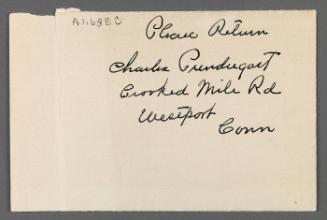 A1,688C
Please Return
Charles Prendergast
Crooked Mile Rd
Westport
Conn